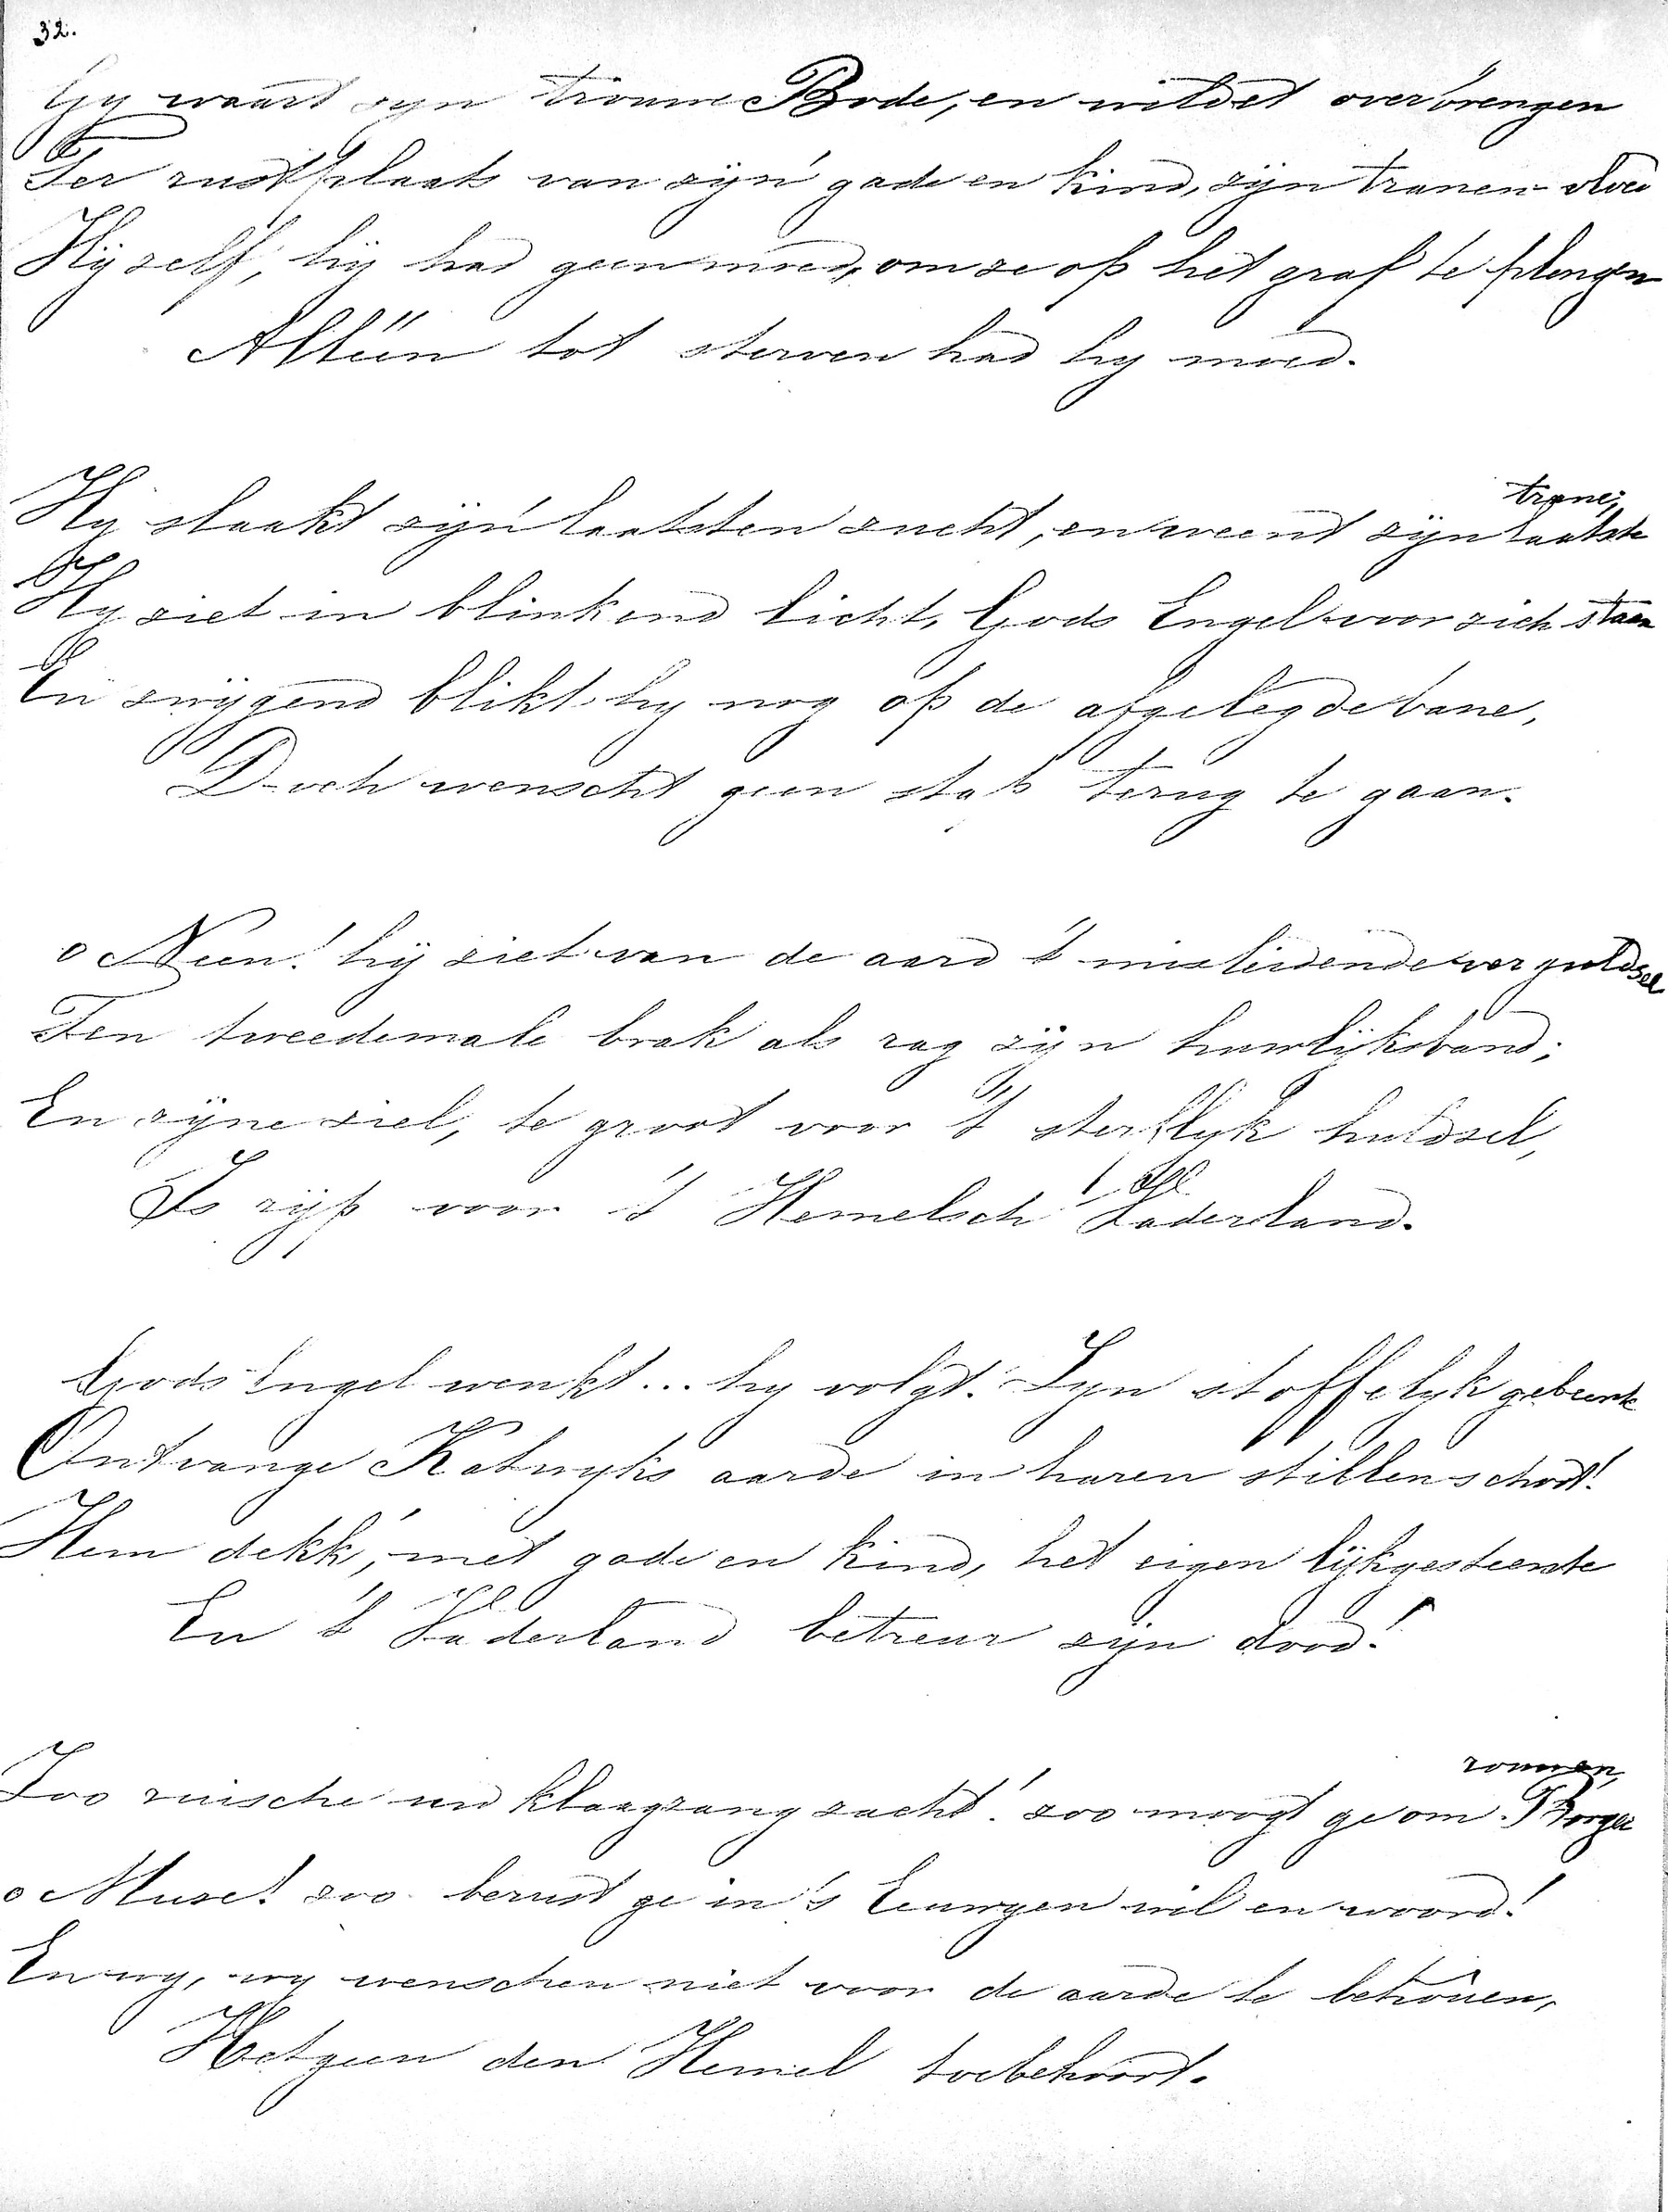 32.
Gy waart zyn trouwe Bode, en wildet overbrengen
Ter rustplaats van zijn' gade en kind, zijn tranen vloed
Hij zelf, hij had geen moed, om ze op het graf te plengen
Alléén tot sterven had hy moed.
Hy slaakt zijn' laatsten zucht, en weent zijn laatste trane;
Hy ziet in blinkend licht, Gods Engel voor zich staan
En zwijgend blikt hy nog op de afgelegde bane,
Doch wenscht geen stap terug te gaan.
o Neen! hij ziet van de aard 't misleidende verguldsel
Ten tweedemale brak als rag zijn huwlijksband;
En zijne ziel, te groot voor 't sterflyk huldsel,
Is rijp voor 't Hemelsch Vaderland.
Gods Engel wenkt... hy volgt. Zyn stoffelyk gebeente
Ontvange Katwyks aarde in haren stillen schoot!
Hem dekk', met gade en kind, het eigen lijkgesteente
En 't Vaderland betreur zijn dood!
Zoo ruische uw klaagzang zacht! zoo moogt ge om Borger rouwen,
o Muse! zoo berust ge in 's Eeuwgen wil en woord!
En wy, wy wenschen niet voor de aarde te behouên,
Hetgeen den Hemel toebehoort.